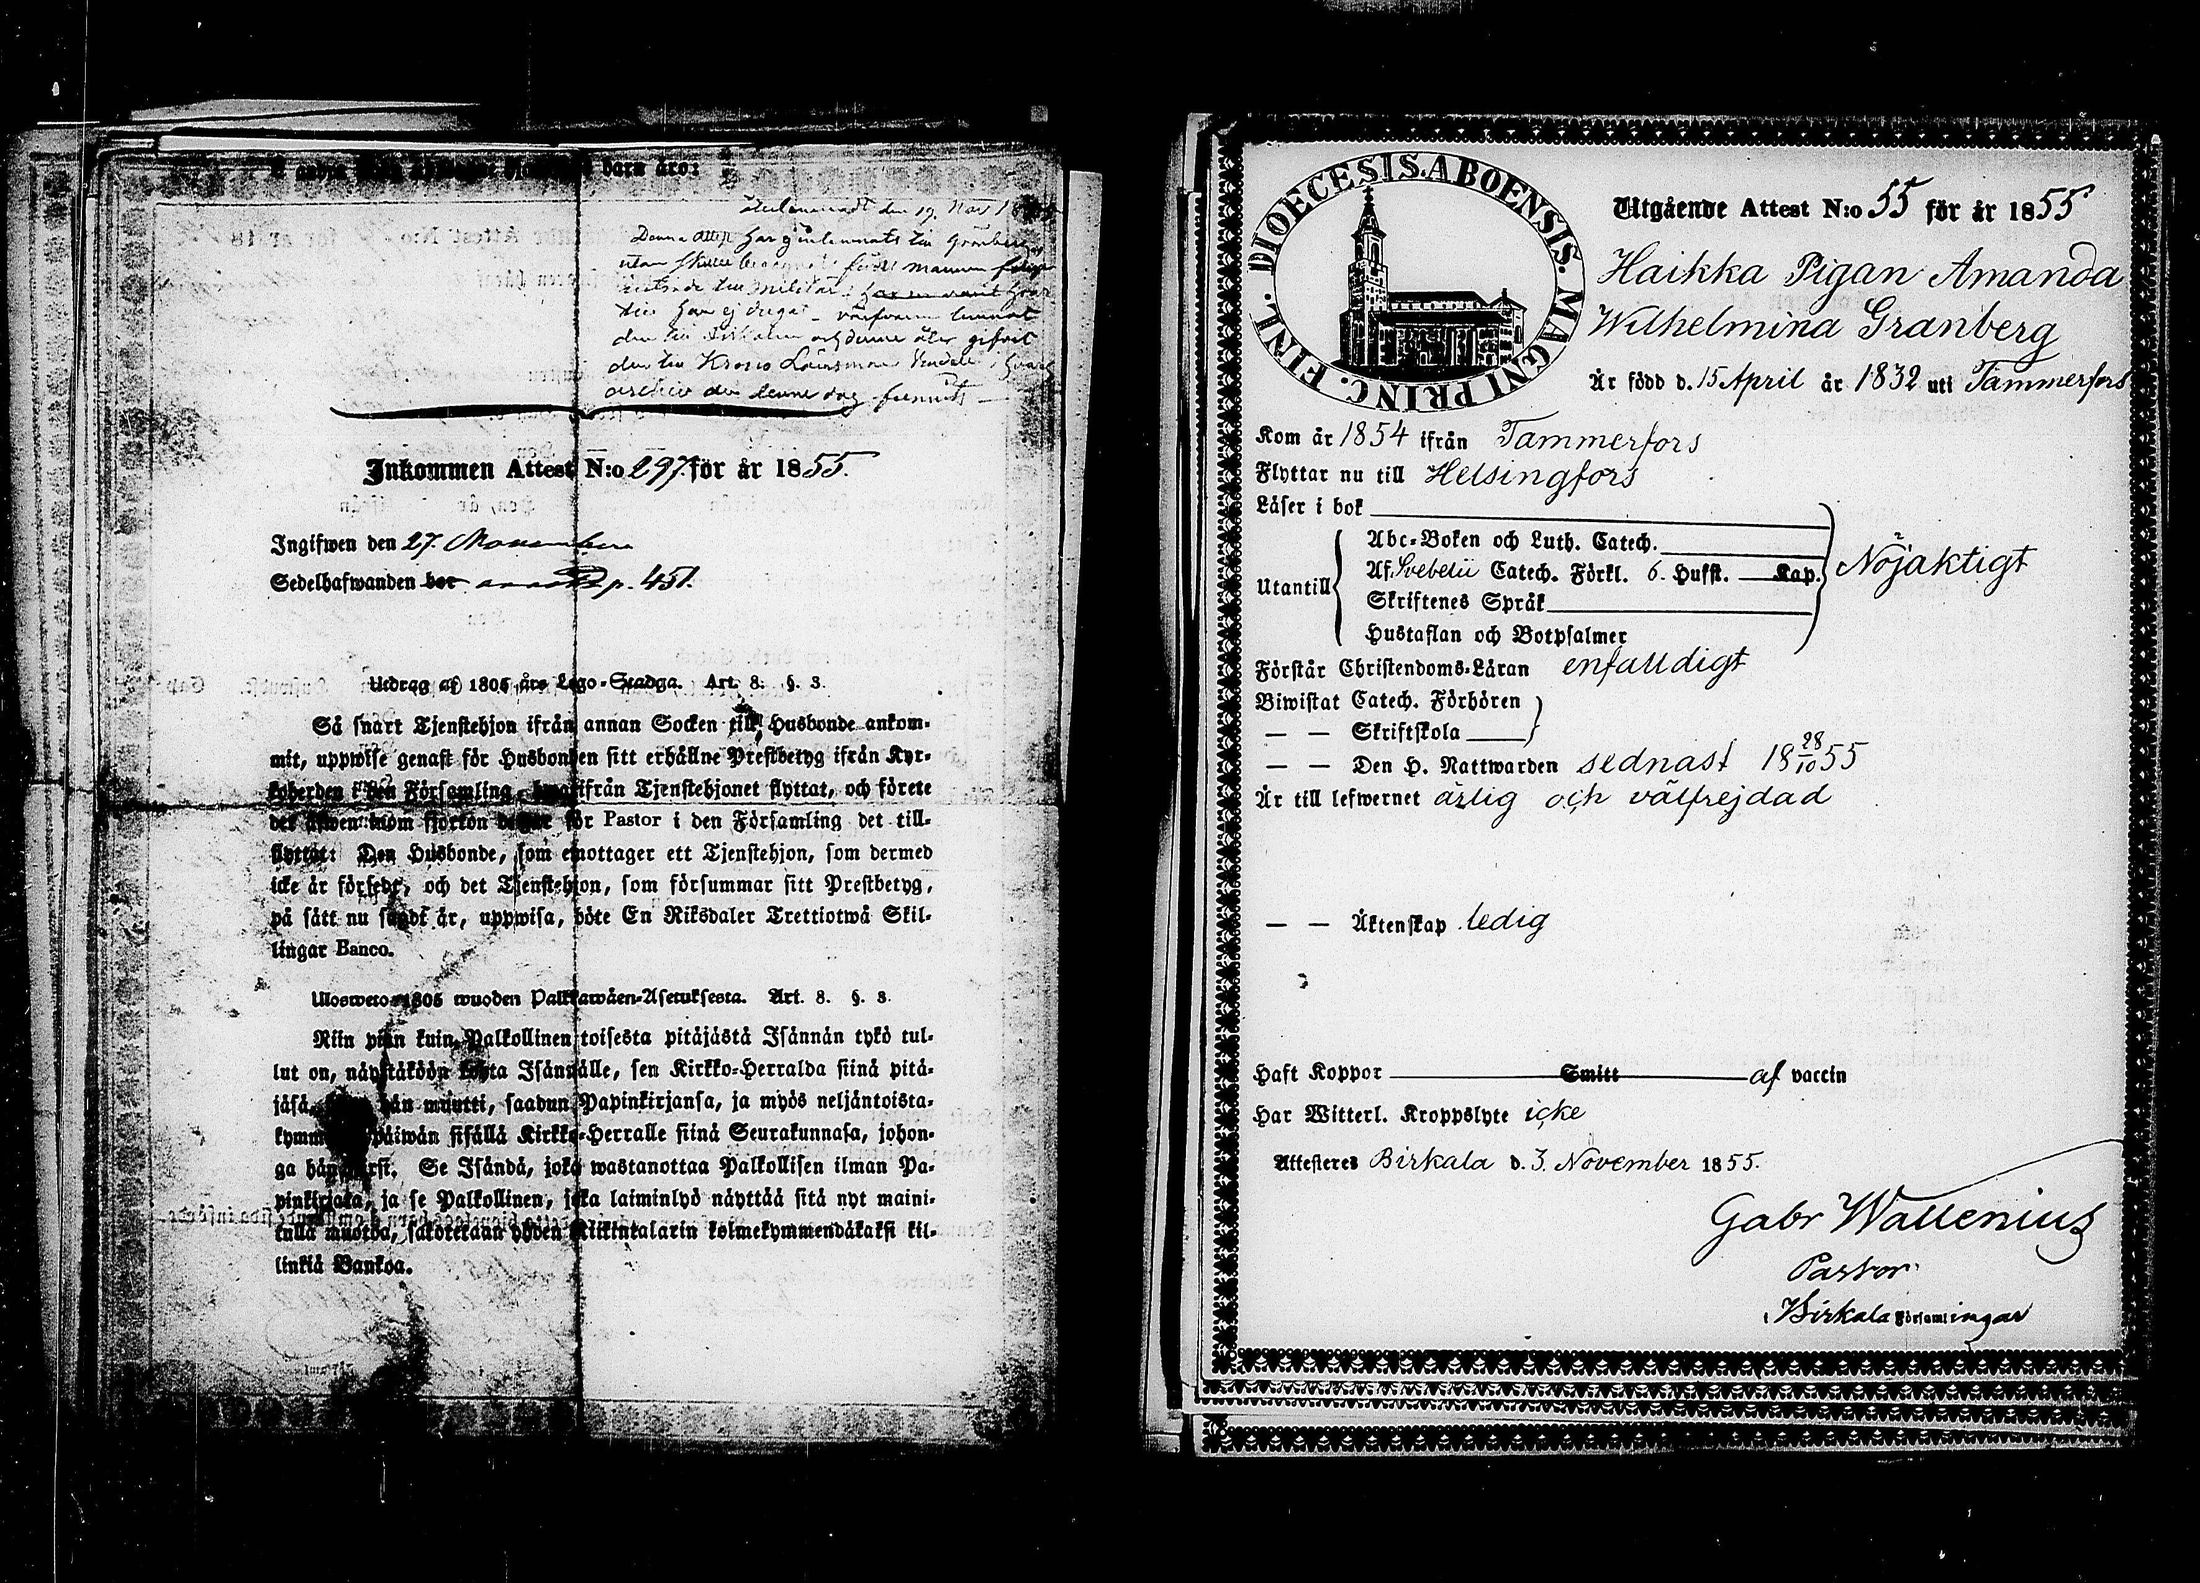 barn äro:
den 19. Nov 18
Denna Attest har
den till Krono Länsman
denne dag
Inkommen Attest N:o 297. för år 1855.
Ingifwen den 27. November
Sedelhafwanden bor p. 451.
Utdrag af 1805 års Lego-Stadga. Art. 8. §. 3.
Så snart Tjenstehjon ifrån annan Socken till Husbonde ankom-
mit, uppwise genast för Husbonden sitt erhållne Prestbetyg ifrån Kyr-
koherden i den Församling, hwarifrån Tjenstehjonet flyttat, och förete
det äfwen inom fjorton dagar för Pastor i den Församling det till-
flyttat: Den Husbonde, som emottager ett Tjenstehjon, som dermed
icke är försedt, och det Tjenstehjon, som försummar sitt Prestbetyg,
på sätt nu sagdt är, uppwisa, böte En Riksdaler Trettiotwå Skil-
lingar Banco.
Ulosweto 1805 wuoden Palkkawäen-Asetuksesta. Art. 8. §. 3.
Niin pian kuin Palkollinen toisesta pitäjästä Isännän tykö tul-
lut on, näyttäköön kohta Isännälle, sen Kirkko-Herralda siinä pitä-
jäsä, hän muutti, saadun Papinkirjansa, ja myös neljäntoista-
kymmenen päiwän sisällä Kirkko-Herralle siinä Seurakunnasa, johon-
ga hän Se Isändä, joka wastanottaa Palkollisen ilman Pa-
pinkirjata, ja se Palkollinen, joka laiminlyö näyttää sitä nyt maini-
tulla muotoa, sakotetaan yhden Riikintalarin kolmekymmendäkaksi kil-
linkiä Bankoa.
FINL. DIOECESIS. ABOENSIS. MAGNI PRINC.
Utgående Attest N:o 55 för år 1855
Haikka Pigan Amanda
Wilhelmina Granberg
Är född d. 15 April år 1832 uti Tammerfors
Kom år 1854 ifrån Tammerfors
Flyttar nu till Helsingfors
Läser i bok
Abc-Boken och Luth. Catech.
Nöjaktigt
Af Svebelii Catech. Förkl. 6. Hufst. Kap.
Utantill
Skriftenes Språk
Hustaflan och Botpsalmer
Förstår Christendoms-Läran enfaldigt
Biwistat Catech. Förhören
— — Skriftskola
— — Den H. Nattwarden sednast 18 28/10 55
Är till lefwernet ärlig och välfrejdad
— — Äktenskap ledig
Haft Koppor Smitt af vaccin
Har Witterl. Kroppslyte icke
Attesteres Birkala d. 3. November 1855.
Gabr Wallenius
Pastor
i Birkala Församlingar